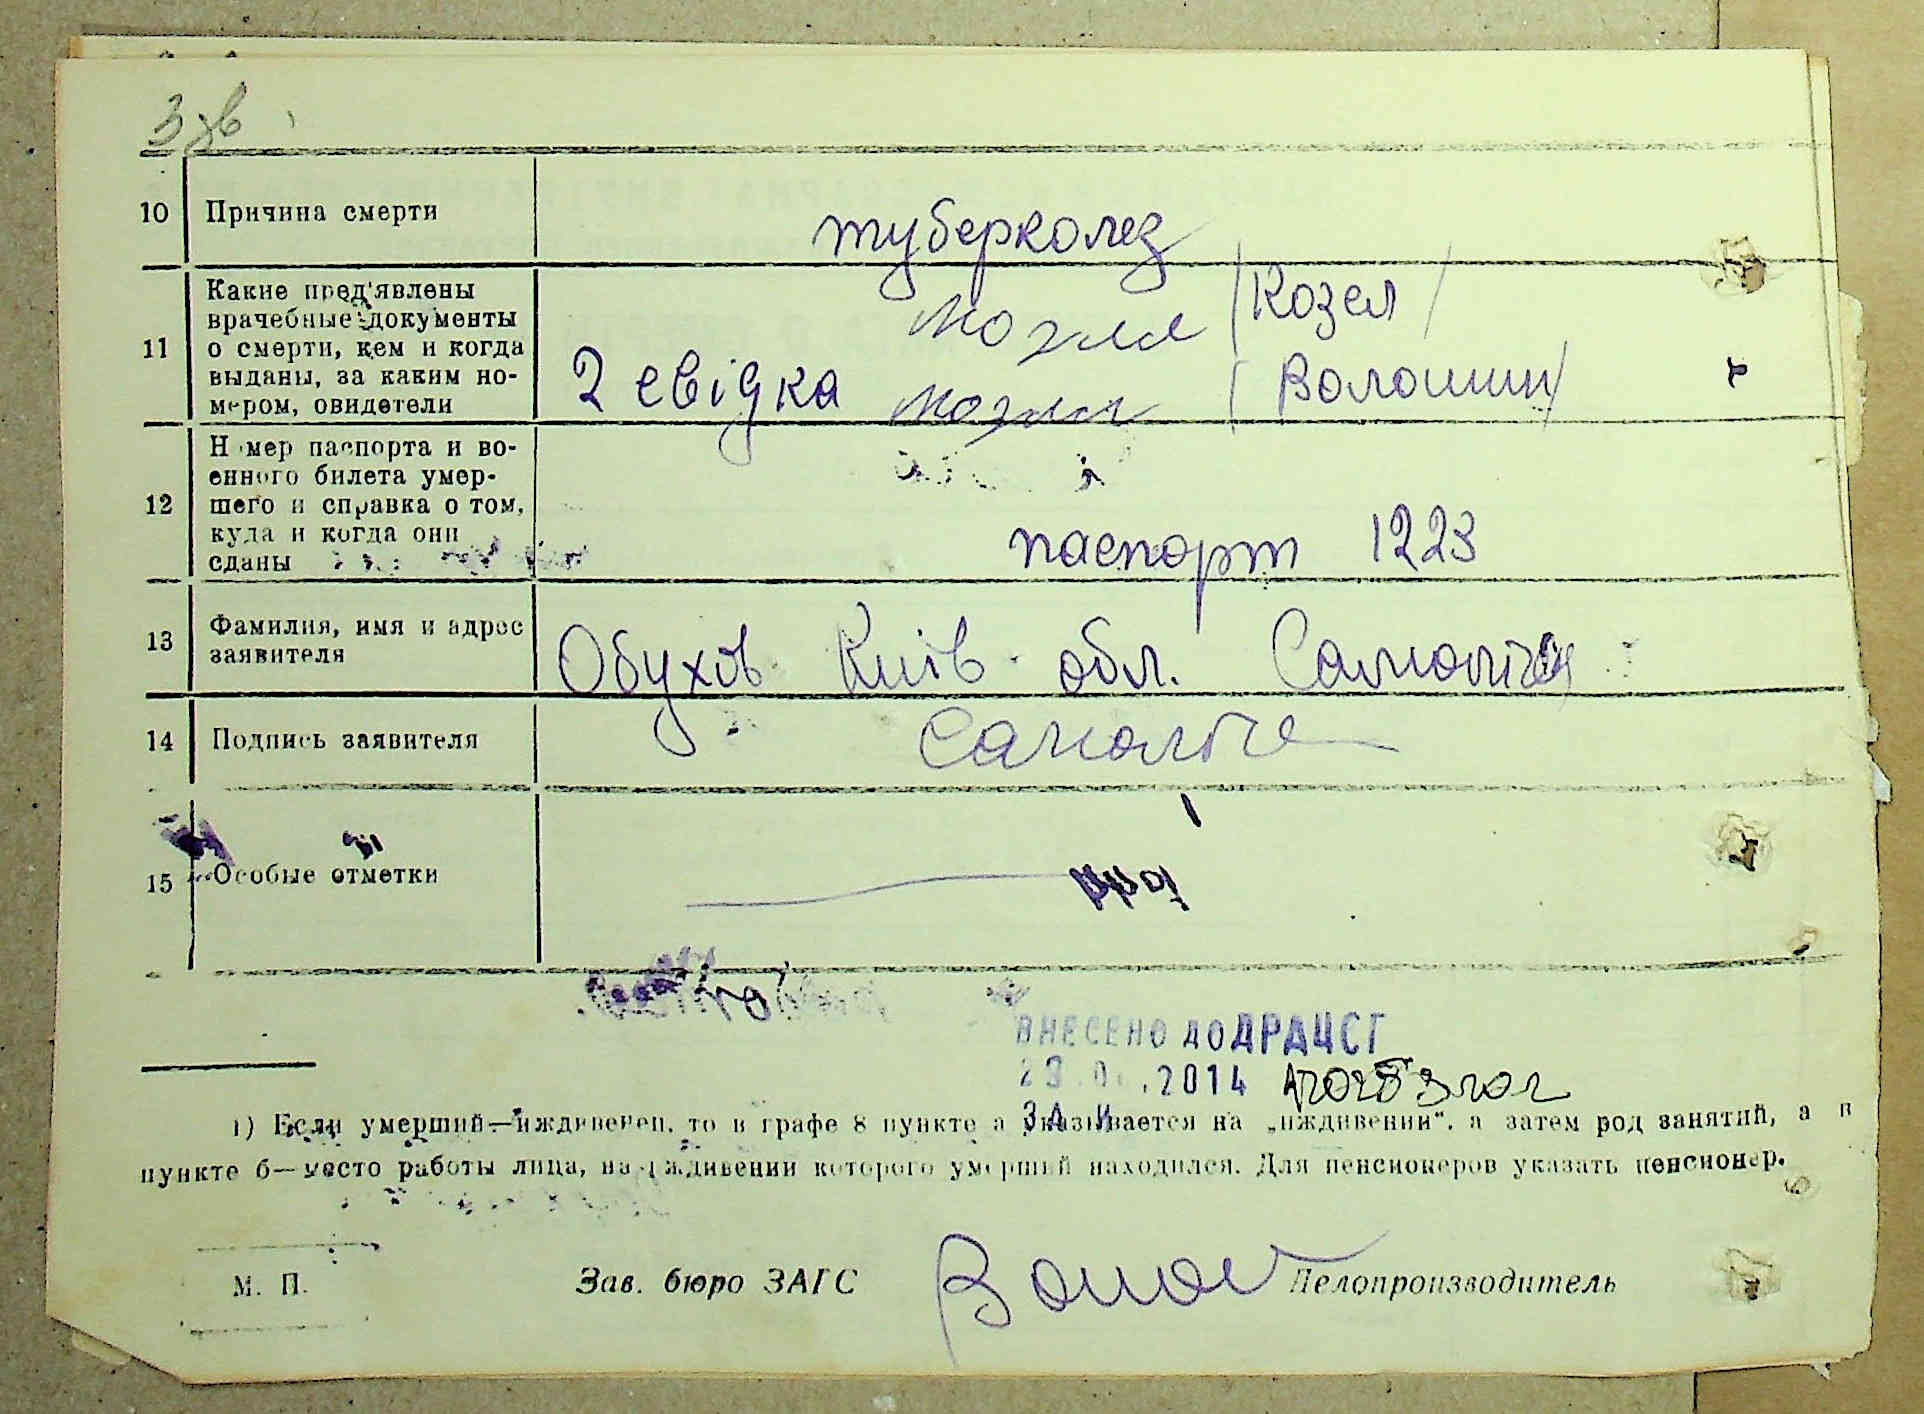 3 зв
10 Причина смерти туберколез
11 Какие пред'явлены
врачебные документы
о смерти, кем и когда
выданы, за каким но-
мером, свидетели
/Козел/
2 свідка /Волошин/
12 Номер паспорта и во-
енного билета умер-
шего и справка о том,
куда и когда они
сданы
паспорт 1223
13 Фамилия, имя и адрес
заявителя
Обухов Київ обл.
14 Подпись заявителя
15 Особые отметки
ВНЕСЕНО ДО ДРАЦСГ
.2014
1) Если умерший—иждивенец, то в графе 8 пункте а указывается на „иждивении“, а затем род занятий, а в
пункте б—место работы лица, на иждивении которого умерший находился. Для пенсионеров указать пенсионер.
М. П. Зав. бюро ЗАГС Делопроизводитель